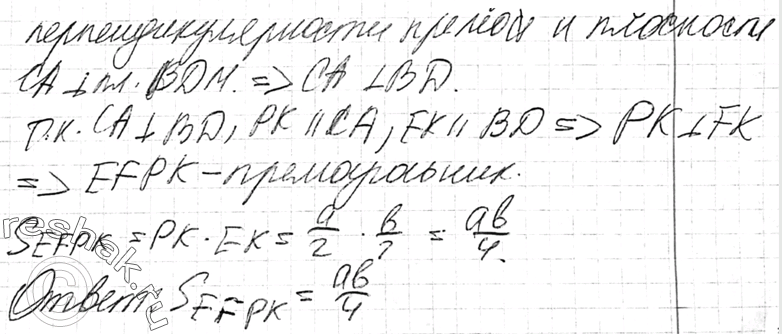 перпендикулярности прямой и плоскости
CA⊥пл. BDM. => CA⊥BD.
т.к. CA⊥BD, PK∥CA, EK∥BD => PK⊥EK
=> EFPK-прямоугольник.
S_EFPK = PK · EK = a/2 · b/2 = ab/4.
Ответ: S_EFPK = ab/4
©reshak.ru